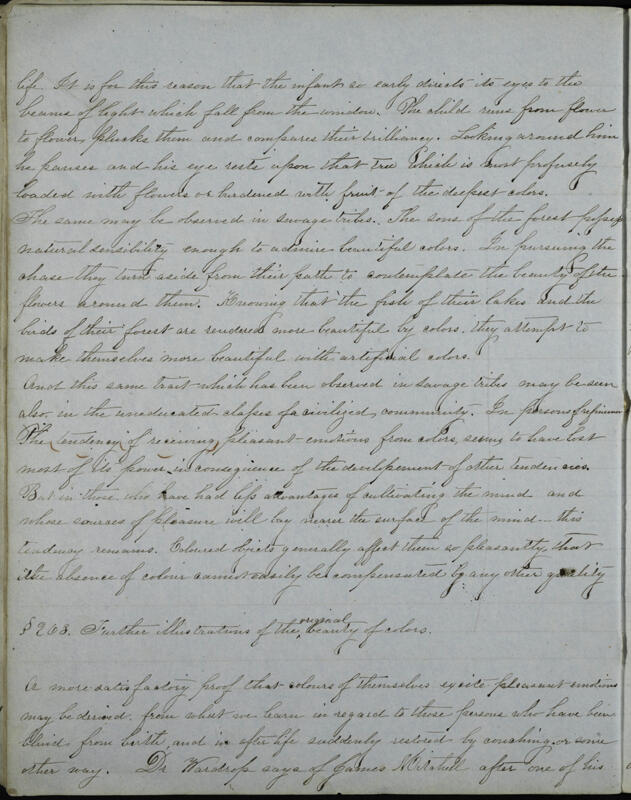 life. It is for this reason that the infant so early directs its eyes to the
beams of light which fall from the window. The child runs from flower
to flower, plucks them and compares their brilliancy. Looking around him
he pauses and his eye rests upon that tree which is most profusely
loaded with flowers or burdened with fruit of the deepest colors.
The same may be observed in savage tribes. The sons of the forest possess
natural sensibility enough to admire beautiful colors. In pursuing the
chase they turn aside from their path to contemplate the beauty of the
flowers around them. Knowing that the fish of their lakes and the
birds of their forest are rendered more beautiful by colors, they attempt to
make themselves more beautiful with artificial colors.
And this same trait which has been observed in savage tribes may be seen
also in the uneducated classes of a civilized community. In persons of refinement
The tendency of receiving pleasant emotions from colors, seems to have lost
most of its power in consequence of the developement of other tendencies.
But in those who have had less advantages of cultivating the mind and
whose sources of pleasure will lay nearer the surface of the mind — this
tendency remains. Coloured objects generally affect them so pleasantly, that
the absence of colour cannot easily be compensured by any other quality
§ 203. Further illustrations of the original beauty of colors.
A more satisfactory proof that colours of themselves excite pleasant emotions
may be derived from what we learn in regard to those persons who have been
blind from birth, and in after life suddenly restored by couching or some
other way. Dr Wardrop says of James Mitchell after one of his